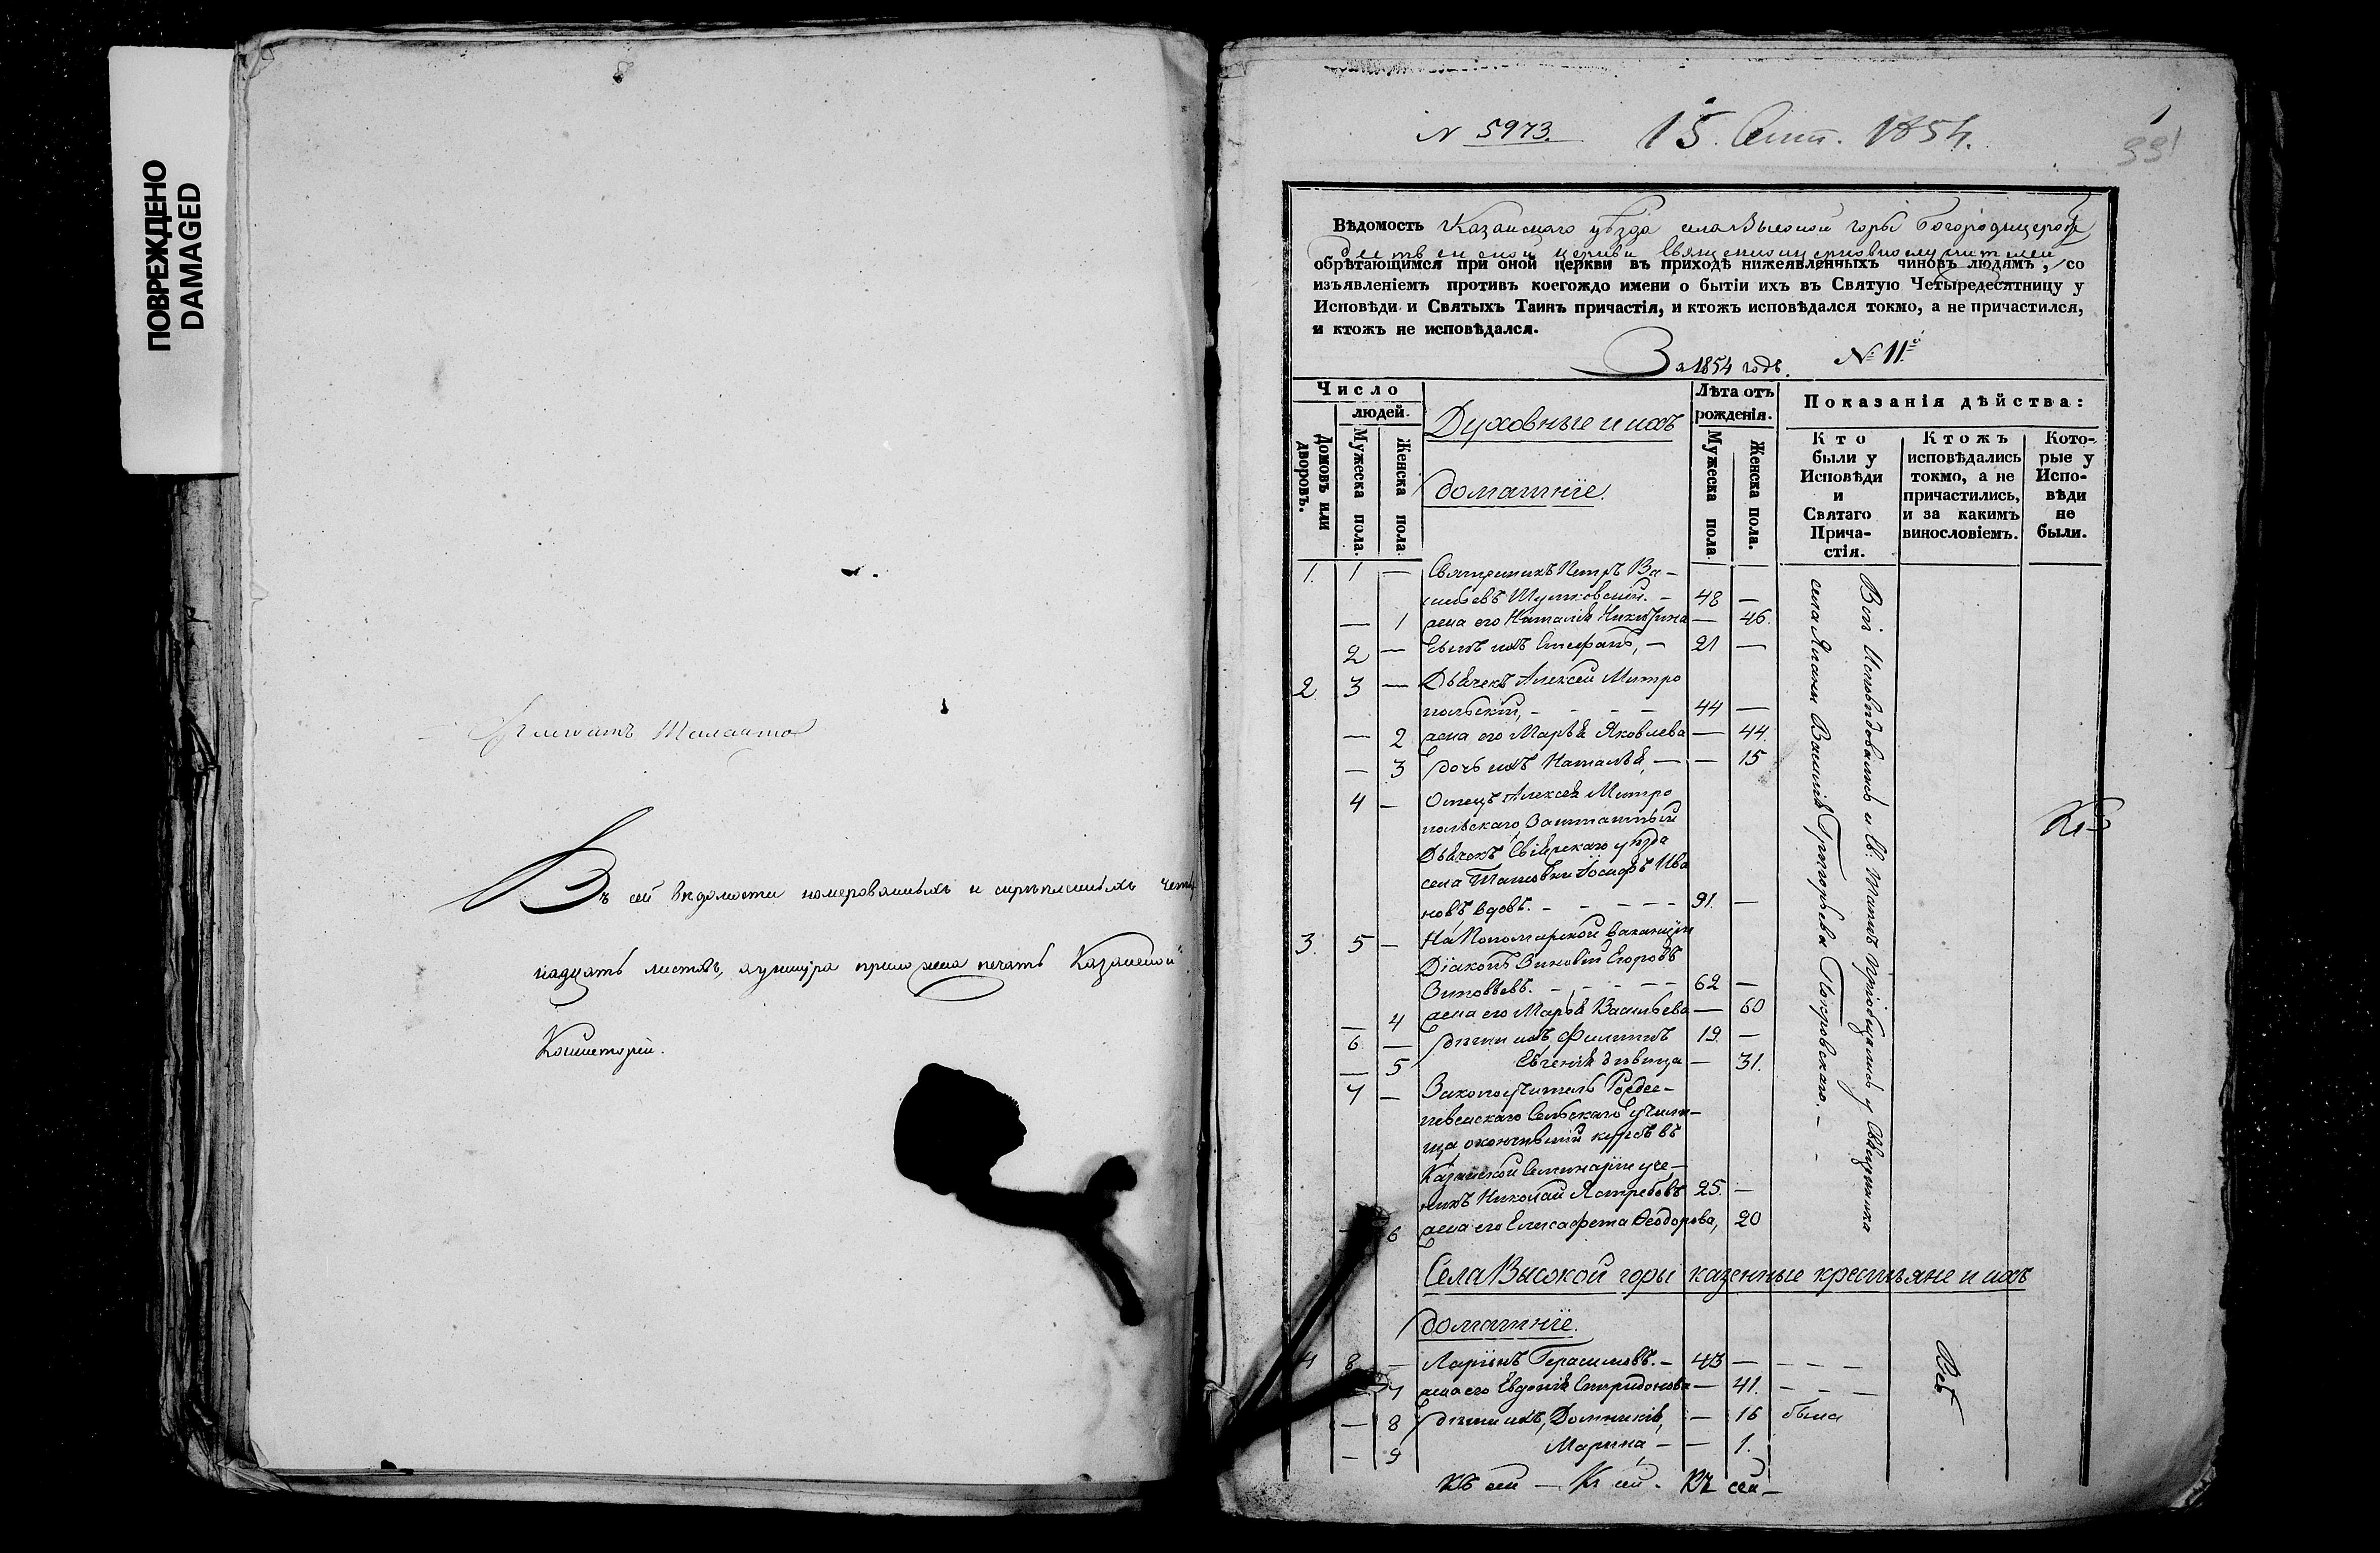 ПОВРЕЖДЕНО
DAMAGED
Въ сей вѣдомости номерованныхъ и скрѣпленныхъ четы
надцать листовъ, а у шнура приложена печать Казанской
Консисторіи.
N 5973. 15. Сент. 1854.
Вѣдомость Казанскаго уѣзда села Высокой горы Богородицерож
дественской церкви
обрѣтающимся при оной церкви въ приходѣ нижеявленныхъ чиновъ людямъ, со
изъявленіемъ противъ коегождо имени о бытіи ихъ въ Святую Четыредесятницу у
Исповѣди и Святыхъ Таинъ причастія, и ктожъ исповѣдался токмо, а не причастился,
и ктожъ не исповѣдался.
За 1854 годъ. № 11.й
Число
людей.
Домовъ или дворовъ.
Мужеска пола.
Женска пола.
Духовные и ихъ
домашніе.
Лѣта отъ
рожденія.
Мужеска пола
Женска пола.
Показанія дѣйства:
Кто
были у
Исповѣди
и
Святаго
Прича-
стія.
Ктожъ
исповѣдались
токмо, а не
причастились,
и за какимъ
винословіемъ.
Кото-
рые у
Испо-
вѣди
не
были.
1. 1 — Священникъ Петръ Ва-
сильевъ — 48 —
— 1 жена его Наталія Никитина — 46.
2 — Сынъ ихъ Стефанъ, — 21 —
2 3 — Дьячекъ Алексей Митро
польскій, - - - - 44 —
— 2 жена его Марья Яковлева — 44.
— 3 дочь ихъ Наталья, — — 15
4 - Отецъ Алексея Митро
польскаго Заштатный
Дьячокъ Свіяжскаго уѣзда
села Іосифъ Ива
новъ вдовъ. - - - - - 91. —
3. 5 - На Пономарской вакансіи
Діаконъ Зиновій Егоровъ
Зиновьевъ. - - - - - 62 —
— 4 жена его Марья Васильева — 60
6 — дѣти ихъ Филиппъ 19. —
— 5 Евгенія дѣвица — 31.
7 — Законоучитель
Сельскаго Учили-
ща, окончившій курсъ въ
Казанской Семинаріи уче-
никъ Николай Ястребовъ 25. —
— 6 жена его Елисавета Ѳеодорова, 20
Всѣ Исповѣдовались и Св: Таинъ пріобщались у Священника
села Василія Григорьева Покровскаго. — -
Села Высокой горы казенные крестьяне и ихъ
домашніе.
4 8 — Ларіонъ Герасимовъ. — 43 — — — —
7 жена его Евдокія Спиридонова — 41. — — —
— 8 дѣти ихъ, Домникія, — 16 была
— 9 Марина, — — 1.
Къ сей — Къ сей. Къ сей —